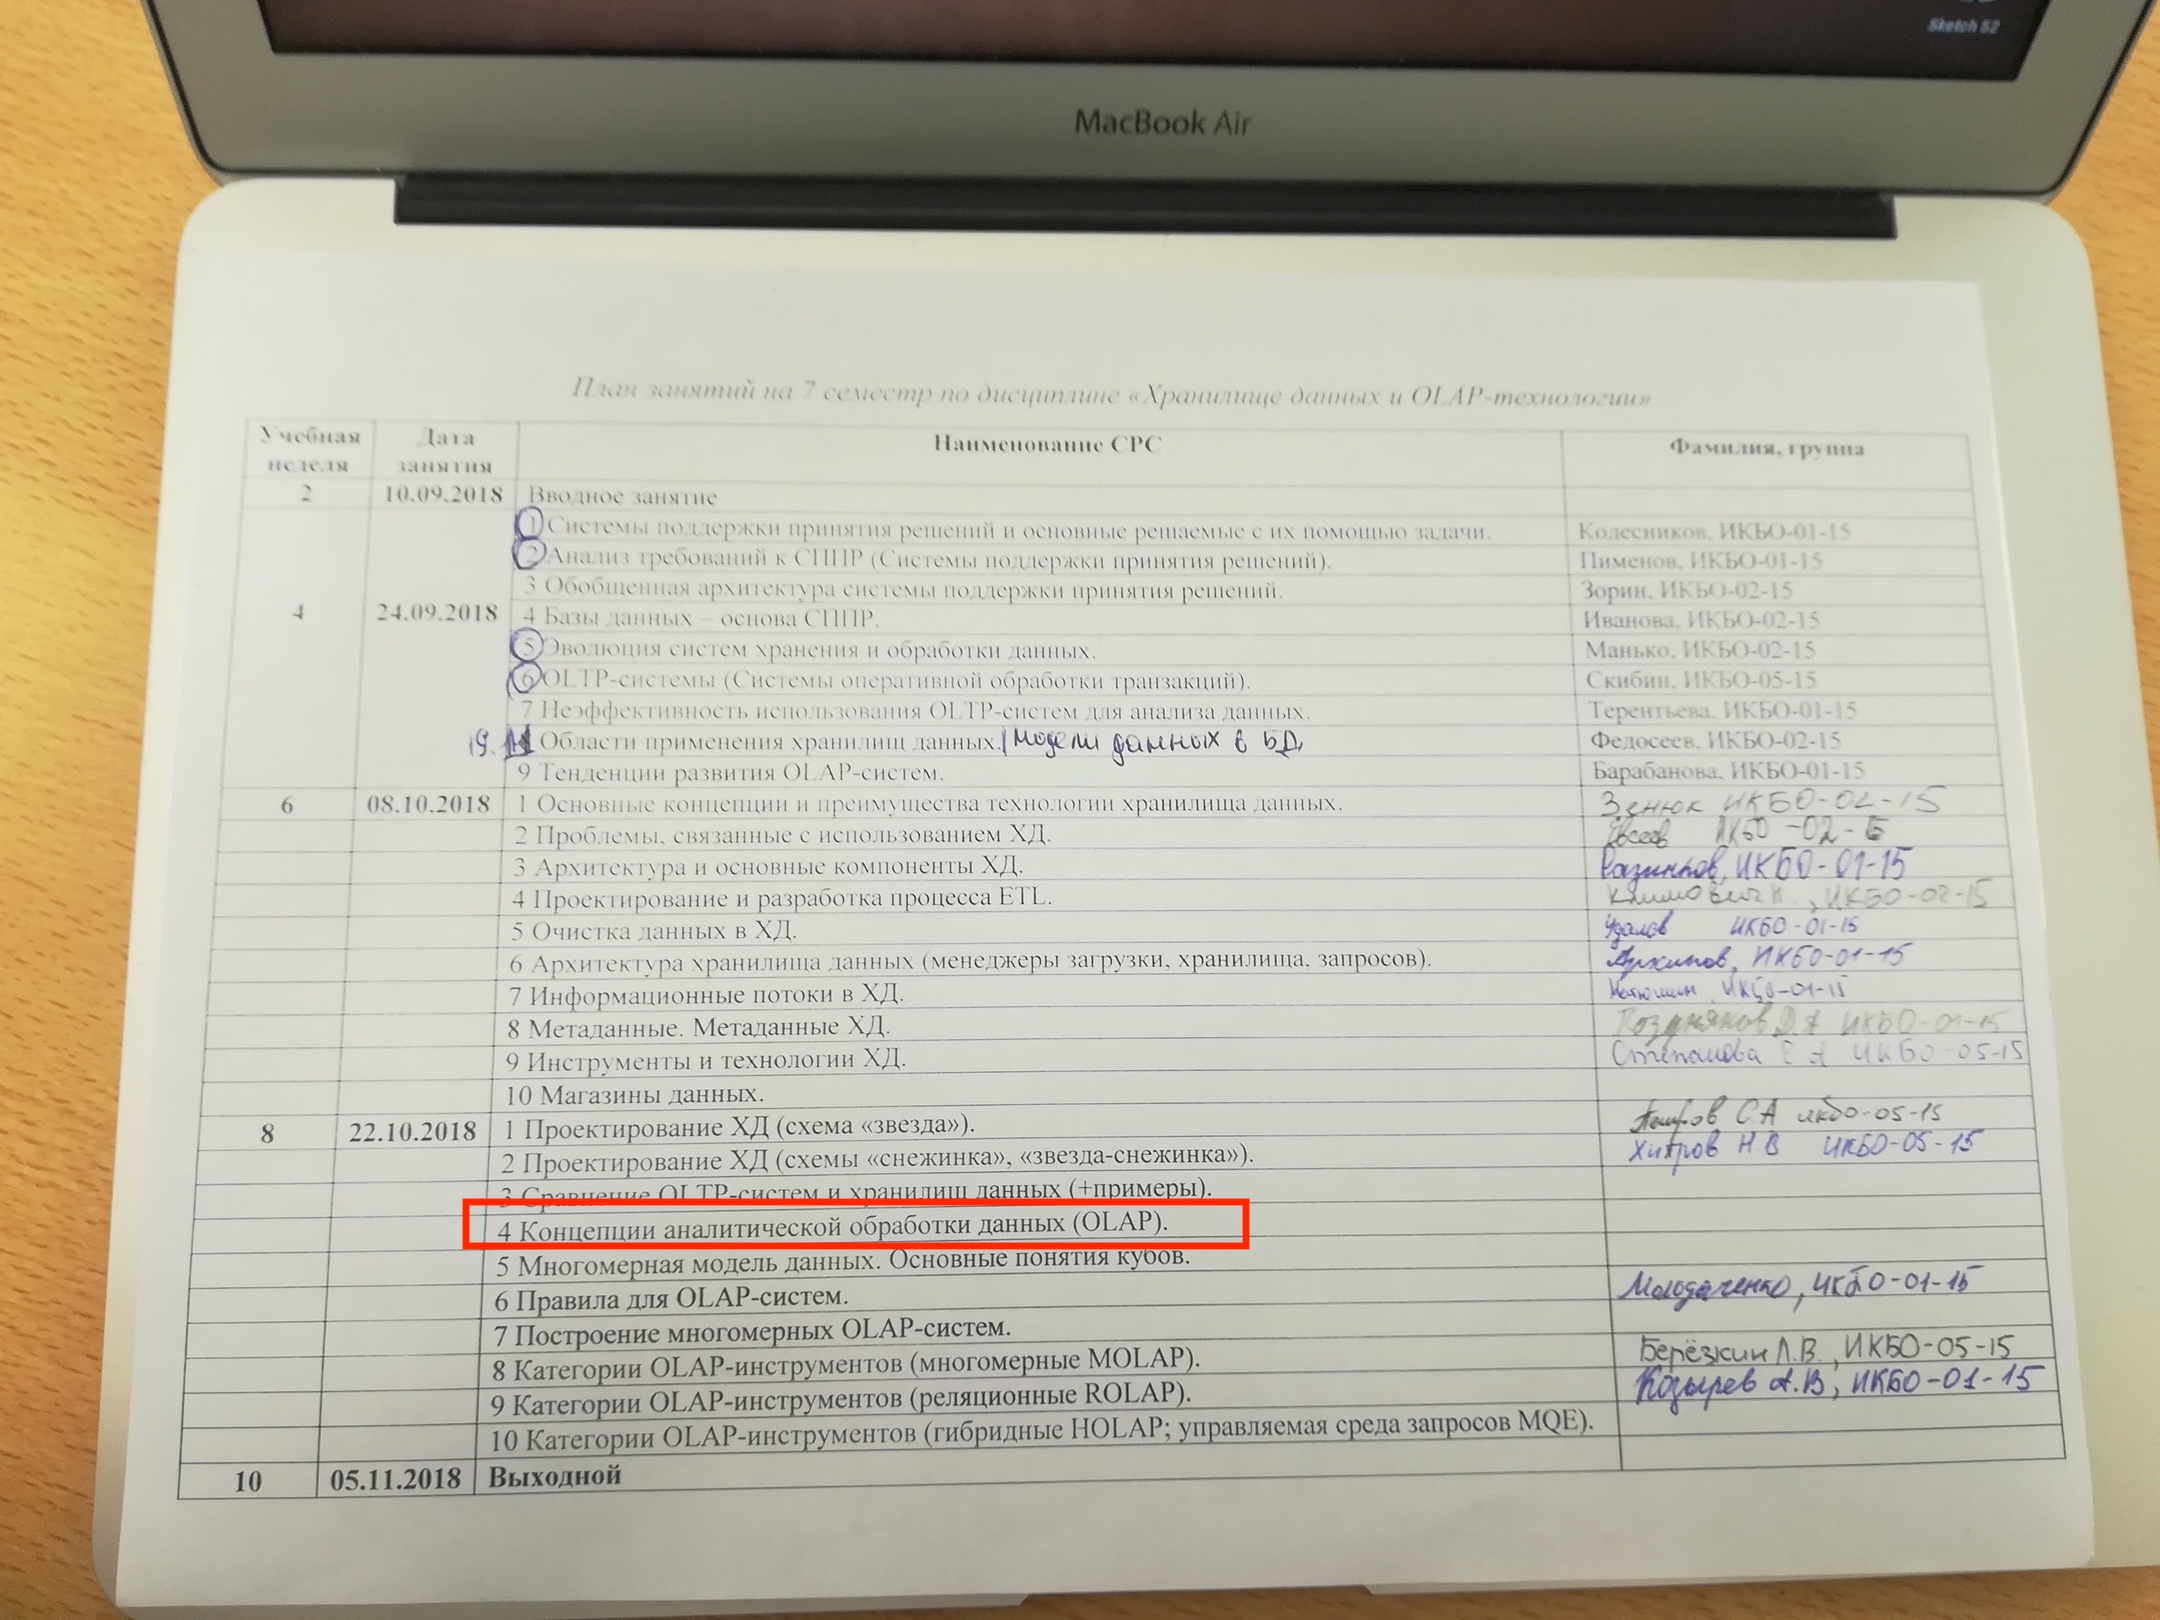 Sketch 52
MacBook Air
План занятий на 7 семестр по дисциплине «Хранилище данных и OLAP-технологии»
Учебная неделя Дата занятия Наименование СРС Фамилия, группа
2 10.09.2018 Вводное занятие
1 Системы поддержки принятия решений и основные решаемые с их помощью задачи. Колесников, ИКБО-01-15
2 Анализ требований к СППР (Системы поддержки принятия решений). Пименов, ИКБО-01-15
3 Обобщенная архитектура системы поддержки принятия решений. Зорин, ИКБО-02-15
4 24.09.2018 4 Базы данных – основа СППР. Иванова, ИКБО-02-15
5 Эволюция систем хранения и обработки данных. Манько, ИКБО-02-15
6 OLTP-системы (Системы оперативной обработки транзакций). Скибин, ИКБО-05-15
7 Неэффективность использования OLTP-систем для анализа данных. Терентьева, ИКБО-01-15
Области применения хранилищ данных. Модели данных в БД Федосеев, ИКБО-02-15
9 Тенденции развития OLAP-систем. Барабанова, ИКБО-01-15
6 08.10.2018 1 Основные концепции и преимущества технологии хранилища данных. Зенюк ИКБО-02-15
2 Проблемы, связанные с использованием ХД. Евсеев ИКБО-02-15
3 Архитектура и основные компоненты ХД. ИКБО-01-15
4 Проектирование и разработка процесса ETL. Климович , ИКБО-02-15
5 Очистка данных в ХД. Удалов ИКБО-01-15
6 Архитектура хранилища данных (менеджеры загрузки, хранилища, запросов). Архипов, ИКБО-01-15
7 Информационные потоки в ХД. ИКБО-01-15
8 Метаданные. Метаданные ХД. Поздняков Д А ИКБО-01-15
9 Инструменты и технологии ХД. Степанова Е А ИКБО-05-15
10 Магазины данных.
8 22.10.2018 1 Проектирование ХД (схема «звезда»). С.А ИКБО-05-15
2 Проектирование ХД (схемы «снежинка», «звезда-снежинка»). Хитров Н.В ИКБО-05-15
3 Сравнение OLTP-систем и хранилищ данных (+примеры).
4 Концепции аналитической обработки данных (OLAP).
5 Многомерная модель данных. Основные понятия кубов.
6 Правила для OLAP-систем. ИКБО-01-15
7 Построение многомерных OLAP-систем.
8 Категории OLAP-инструментов (многомерные MOLAP). Берёзкин Л.В., ИКБО-05-15
9 Категории OLAP-инструментов (реляционные ROLAP). Козырев А.В, ИКБО-01-15
10 Категории OLAP-инструментов (гибридные HOLAP; управляемая среда запросов MQE).
10 05.11.2018 Выходной